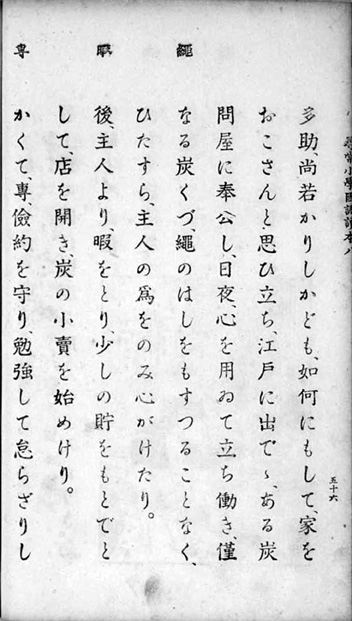 尋常小學國語讀本卷八
五十六
多助、尚若かりしかども、如何にもして、家を
おこさんと、思ひ立ち、江戸に出でゝ、ある炭
問屋に奉公し、日夜、心を用ゐて立ち働き、僅
なる炭くづ、繩のはしをもすつることなく、
ひたすら、主人の爲をのみ心がけたり。
後、主人より、暇をとり、少しの貯をもとでと
して、店を開き、炭の小賣を始めけり。
かくて、專、儉約を守り、勉強して怠らざりし
繩
專